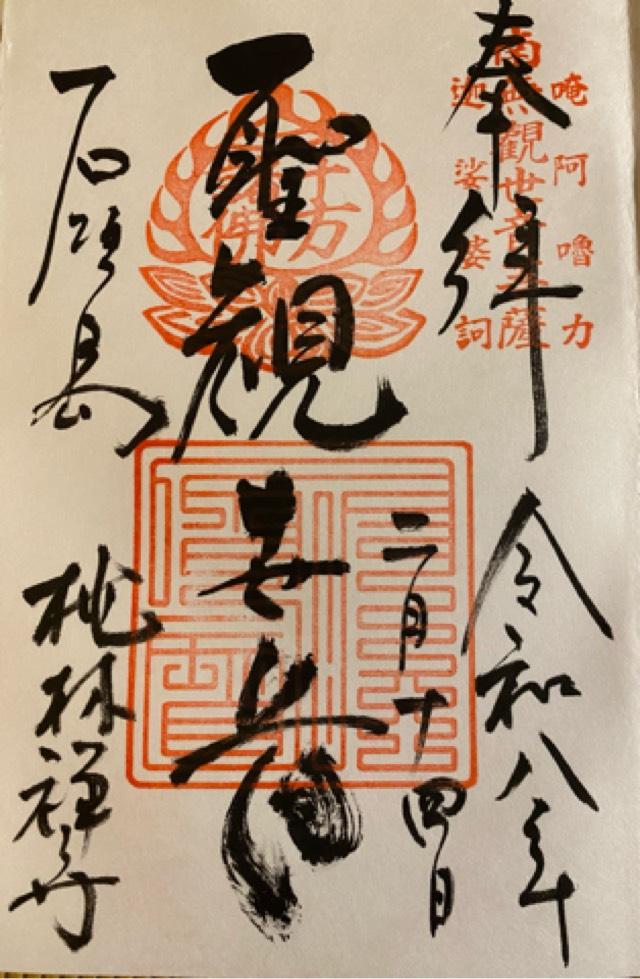 奉拝
令和八年
二月十四日
唵阿嚕力
南無観世音菩薩
迦娑婆訶
聖観世音
十方
佛
石垣島
桃林禅寺